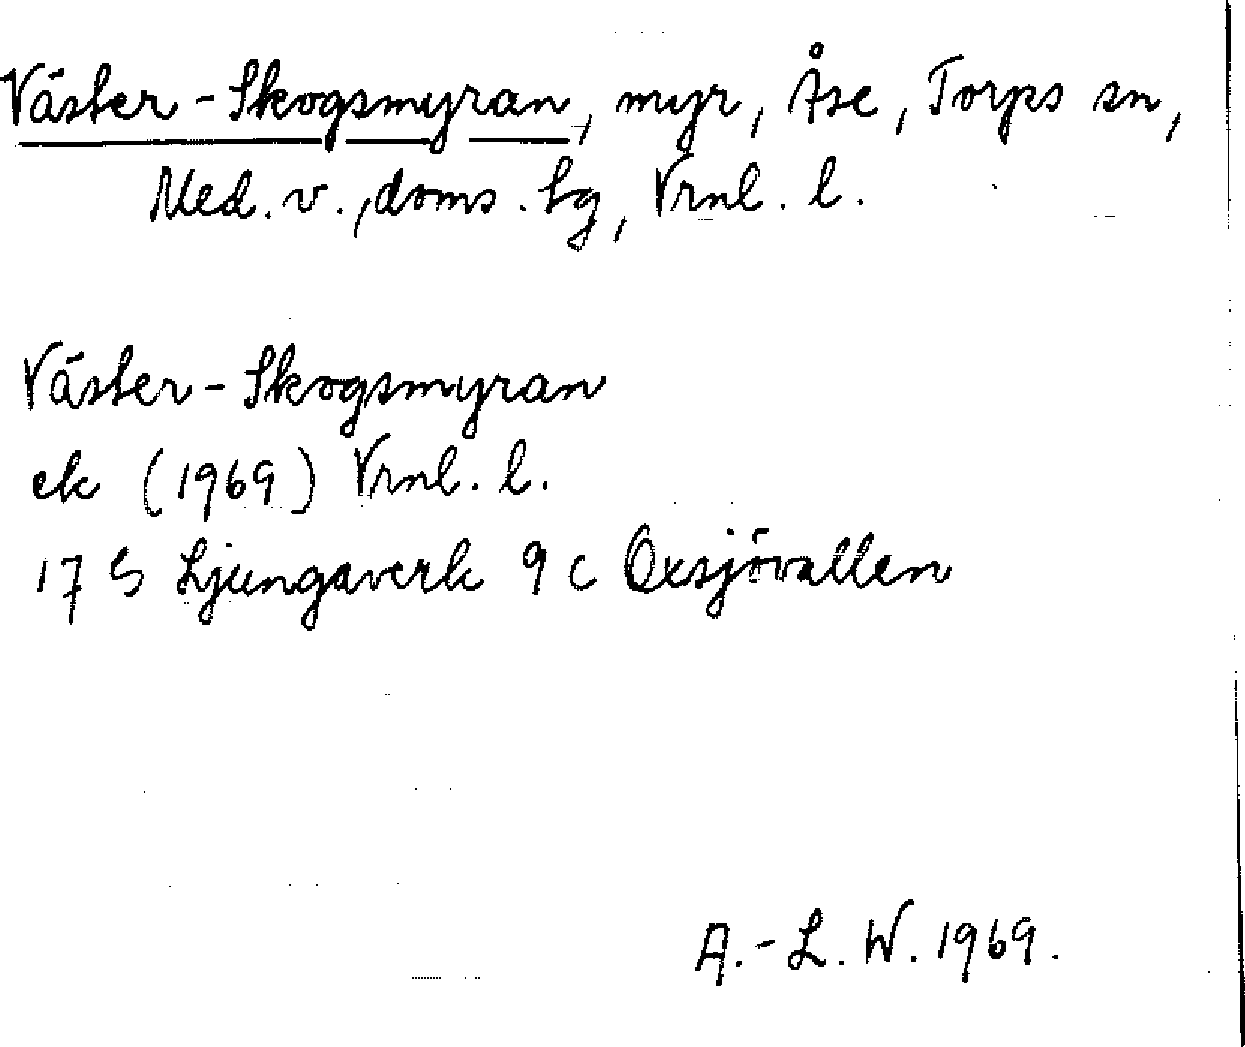 Väster-Skogsmyran, myr, Åse, Torps sn,
Med. v., doms. hg, Vrnl. l.
Väster-Skogsmyran
ek (1969) Vrnl. l.
17 G Ljungaverk 9 c Oxsjövallen
A.-L. W. 1969.